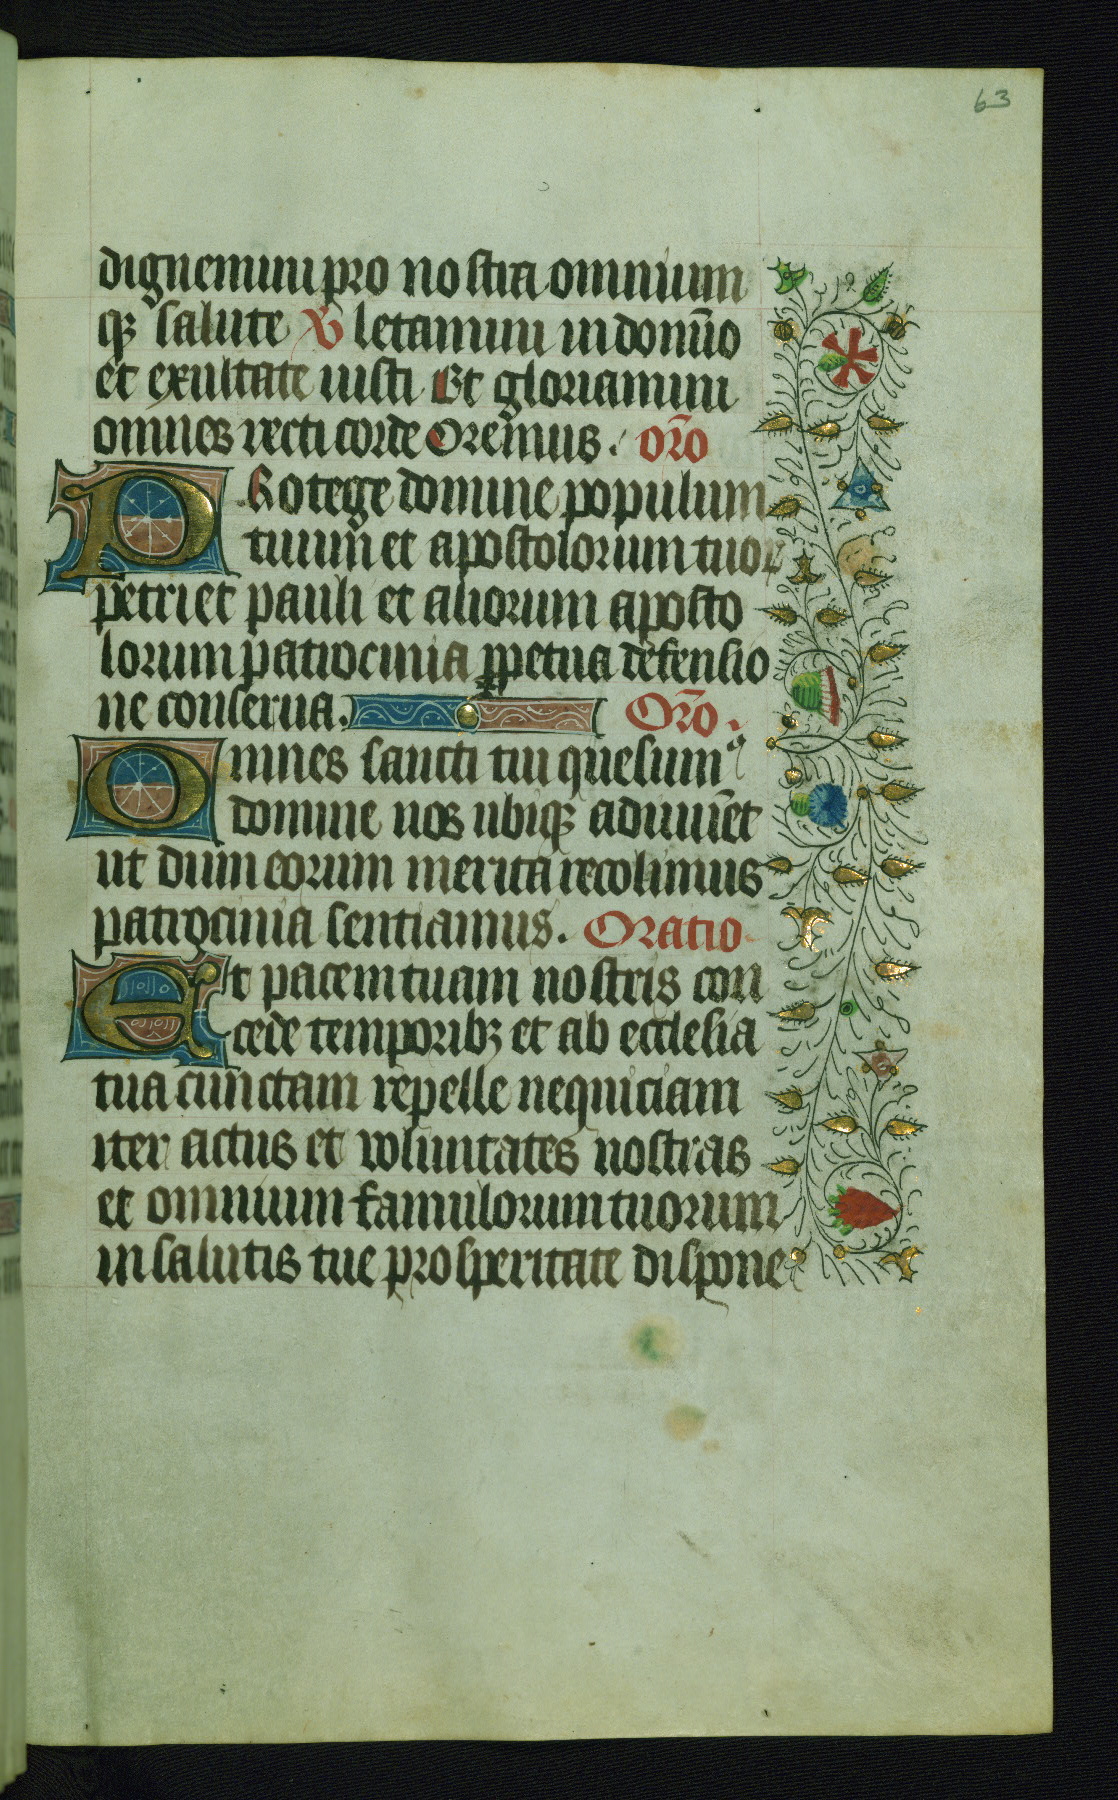 63
dignemini pro nostra omnium
qꝫ salute ℣ letamini in domīo
et exultate iusti Et gloriamini
omnes recti corde Orem̄us. or̄o
PRotege domine populum
tuum et apostolorum tuoꝝ
petri et pauli et aliorum aposto
lorum patrocinia ꝑpetua defensio
ne conserua. Or̄o.
Omnes sancti tui quesumꝰ
domine nos ubiqꝫ adiuuēt
ut dum eorum merita recolimus
patrocinia sentiamus. Oratio
Et pacem tuam nostris con
cede temporibꝫ et ab ecclesia
tua cunctam repelle nequiciam
iter actus et voluntates nostras
et omnium famulorum tuorum
in salutis tue prosperitate dispone